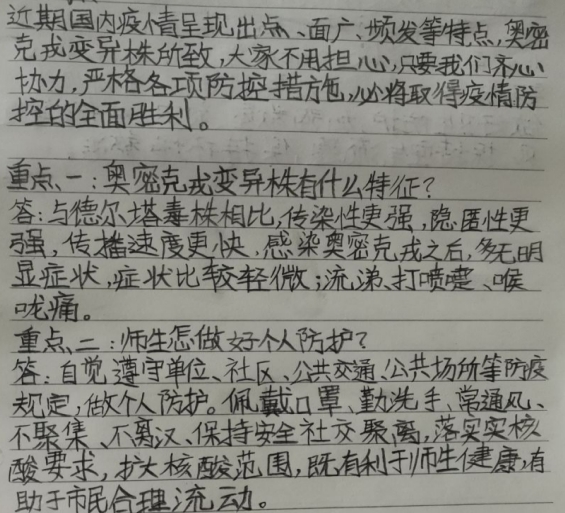 近期国内疫情呈现出点、面广、频发等特点,奥密
克戎变异株所致,大家不用担心,只要我们齐心
协力,严格各项防控措施,必将取得疫情防
控的全面胜利。
重点、一:奥密克戎变异株有什么特征?
答:与德尔塔毒株相比,传染性更强,隐匿性更
强,传播速度更快,感染奥密克戎之后,多无明
显症状,症状比较轻微;流涕、打喷嚏、喉
咙痛。
重点、二:师生怎做好个人防护?
答:自觉遵守单位、社区、公共交通、公共场所等防疫
规定,做个人防护。佩戴口罩、勤洗手、常通风、
不聚集、不离汉、保持安全社交聚离,落实实核
酸要求,扩大核酸范围,既有利于师生健康,有
助于市民合理流动。